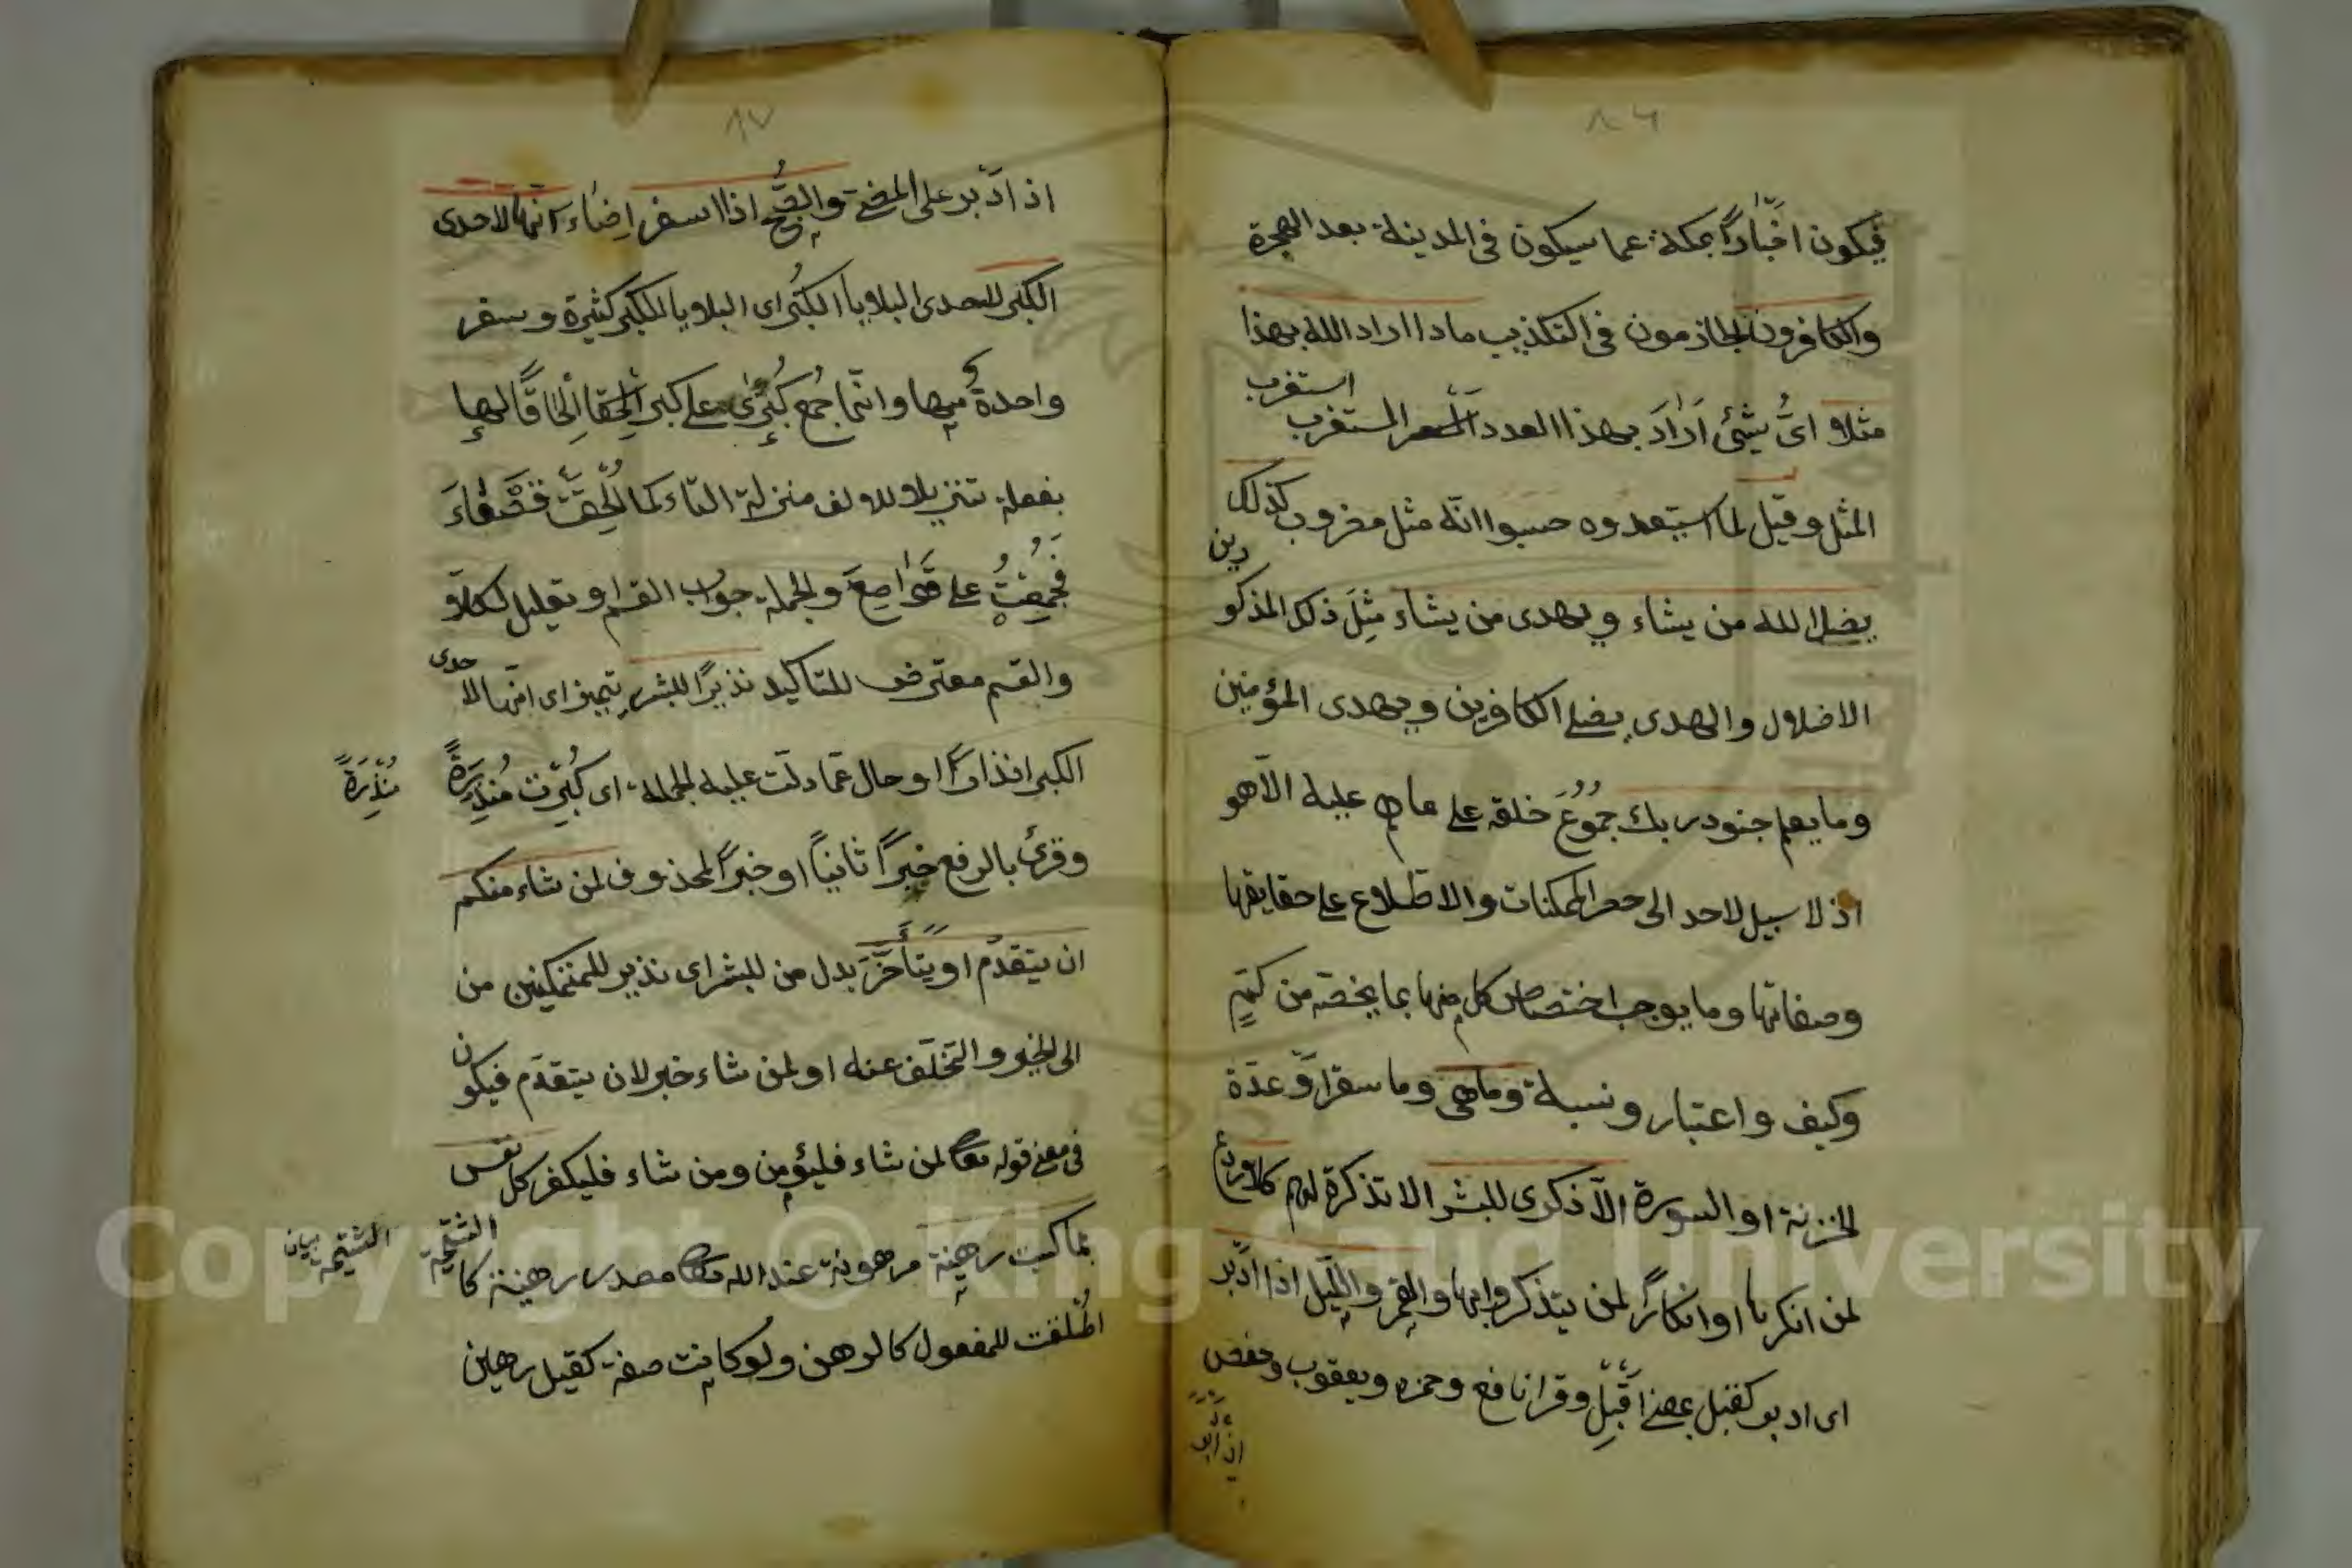 ٨٦
فيكون اخبارًا بمكة عما سيكون في المدينة بعد الهجرة
والكافرون الجازمون في التكذيب ماذا اراد الله بهذا
مثلا اىُّ شيئ اَرَادَ بهذا العدد المستغرب استغرب
المثل وقيل لما استبعدوه حسبوا انه مثل مضروب كذلك
يضل الله من يشاء ويهدى من يشاء مِثلَ ذلك المذكو
الاضلال والهدى يضل الكافرين ويهدى المؤمنين
وما يعلم جنود ربك جُمُوعَ خلقه على ما هم عليه الّا هو
اذ لا سبيل لاحد الى حصر الممكنات والاطلاع على حقايقها
وصفاتها وما يوجب اختصاص كل منها بما يخصه من كمٍّ
وكيف واعتبار ونسبة وما هى وما سقر او عدّة
الخزنة او السورة الّا ذكرى للبشر الا تذكرة لهم كلا ردع
لمن انكرها او انكارًا لمن يتذكروا بها والقمر والليل اذا ادبر
اى ادبر كقبل بمعنى اقْبَل وقرا نافع وحمزه ويعقوب وحفص
اذ ادبر
٨٧
اذ ادْبر على المضى والصُّبح اذا اسفر اضاء انّها لاحدى
الكبر لاحدى البلايا الكُبَر اى البلايا الكبر كثيرة وسقر
واحدةٌ منها وانّما جُمع كُبْرى على كبر اِلحاقًا لها
بفعلة تنزيلا للالف منزلة التاء كما اُلْحِقَتْ قَصْعَاءَ
فَجُمِعَتْ على قَوَاصِعَ والجملة جواب القسم او تعليل لكلّا
والقسم معترض للتاكيد نذيرًا للبشر تمييز اى انّها لاحدى
الكبر انذارًا او حال عمّا دلت عليه الجملة اى كَبُرَت مُنذِرَةً
مُنذِرَةً
وقرئ بالرفع خبرًا ثانيًا او خبرًا لمحذوف لمن شاء منكم
ان يتقدم او يتأخَّرَ بدل من للبشر اى نذير للمتمكنين من
الى الخير والتخلّف عنه او لمن شاء خبر لان يتقدّم فيكون
فى معنى قوله تعا لمن شاء فليؤمن ومن شاء فليكفر كل نفس
بما كسبت رهينة مرهونة عند الله تعا مصدر رهينة كالشتيمة
الشتيمة بيان
اُطْلقت للمفعول كالرهن ولو كانت صفة كقيل رهين
Copyright © King Saud University